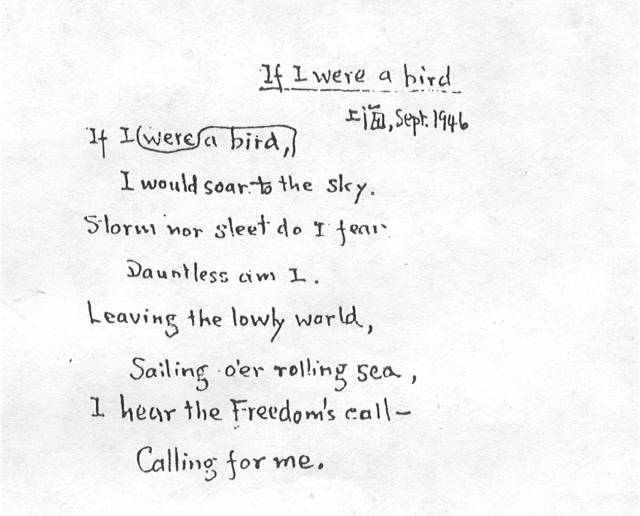 If I were a bird
上海, Sept. 1946
If I were a bird,
I would soar to the sky.
Storm nor sleet do I fear.
Dauntless am I.
Leaving the lowly world,
Sailing o'er rolling sea,
I hear the Freedom's call–
Calling for me.